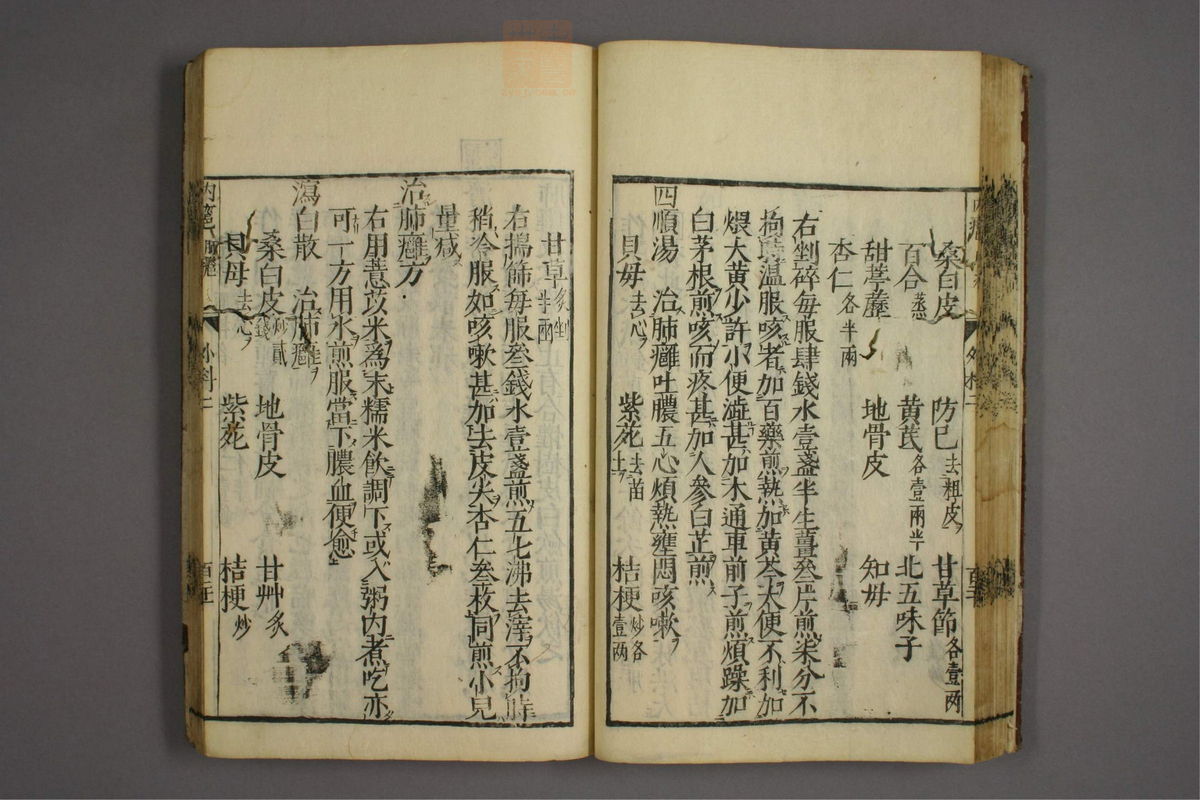 桑白皮 防巳去粗皮 甘草節各壹兩
百合蒸 黃芪各壹兩半 北五味子
甜葶藶 地骨皮 知母
杏仁各半兩
右剉碎每服肆錢水壹盞半生薑叁片煎柒分不
拘時溫服咳者加百藥煎熱加黃芩大便不利加
煨大黃少許小便澁甚加木通車前子煎煩躁加
白茅根煎咳而疼甚加人參白芷煎
四順湯 治肺癰吐膿五心煩熱壅悶咳嗽
貝母去心 紫菀去苗土 桔梗炒各壹兩
甘草炙剉半兩
右搗篩每服叁錢水壹盞煎五七沸去滓不拘時
稍冷服如咳嗽甚加去皮尖杏仁叁枚同煎小兒
量減
治肺癰方
右用薏苡米爲末糯米飲調下或入粥內煮吃亦
可一方用水煎服當下膿血便愈
瀉白散 治肺癰
桑白皮炒貳錢 地骨皮 甘艸炙
貝母去心 紫菀 桔梗炒
外科二